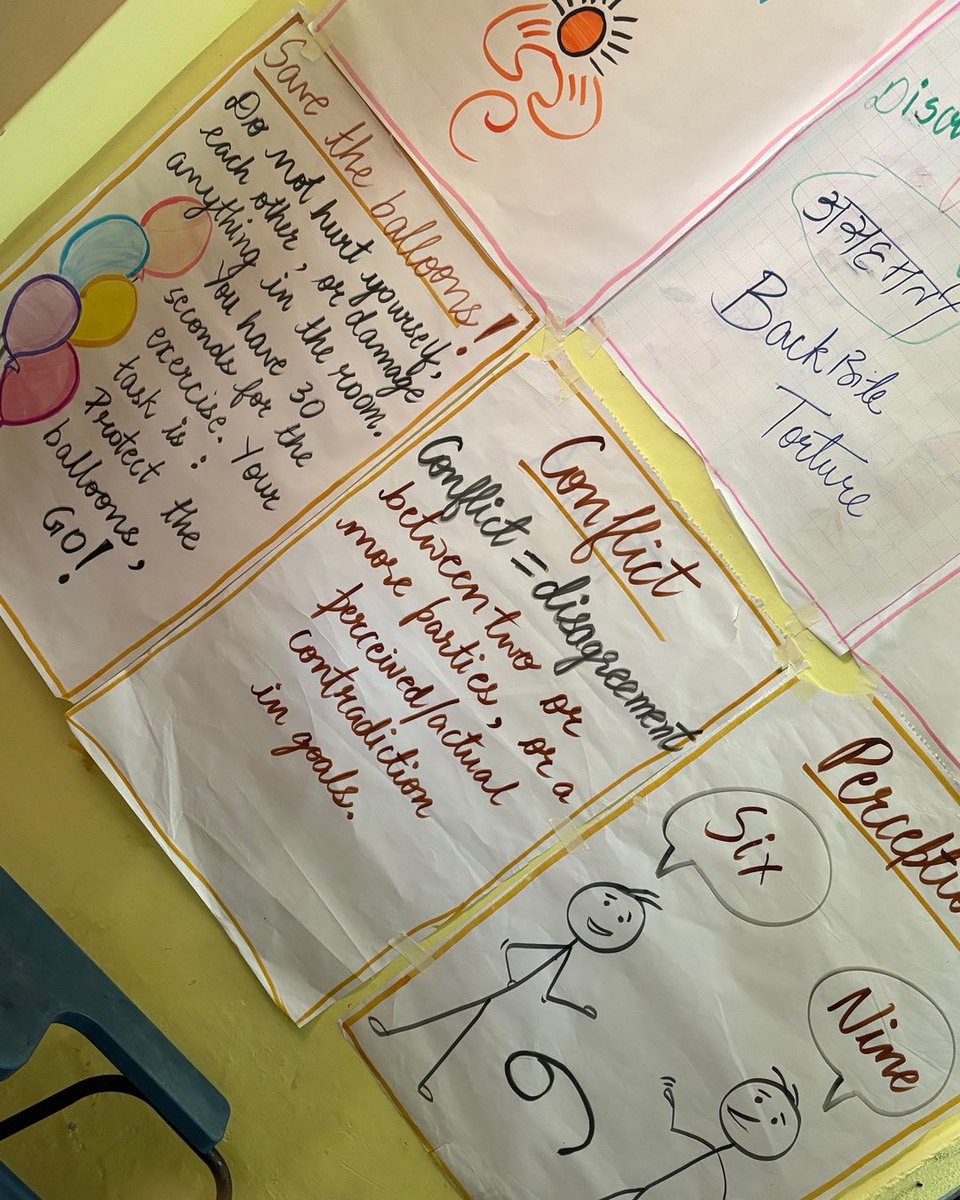 Save the balloons!
Do not hurt yourself,
each other, or damage
anything in the room.
You have 30
seconds for the
exercise. Your
task is:
Protect the
balloons,
GO!
Conflict
Conflict = disagreement
between two or
more parties, or a
perceived/actual
contradiction
in goals.
Back Bite
Torture
Six
Nine
6